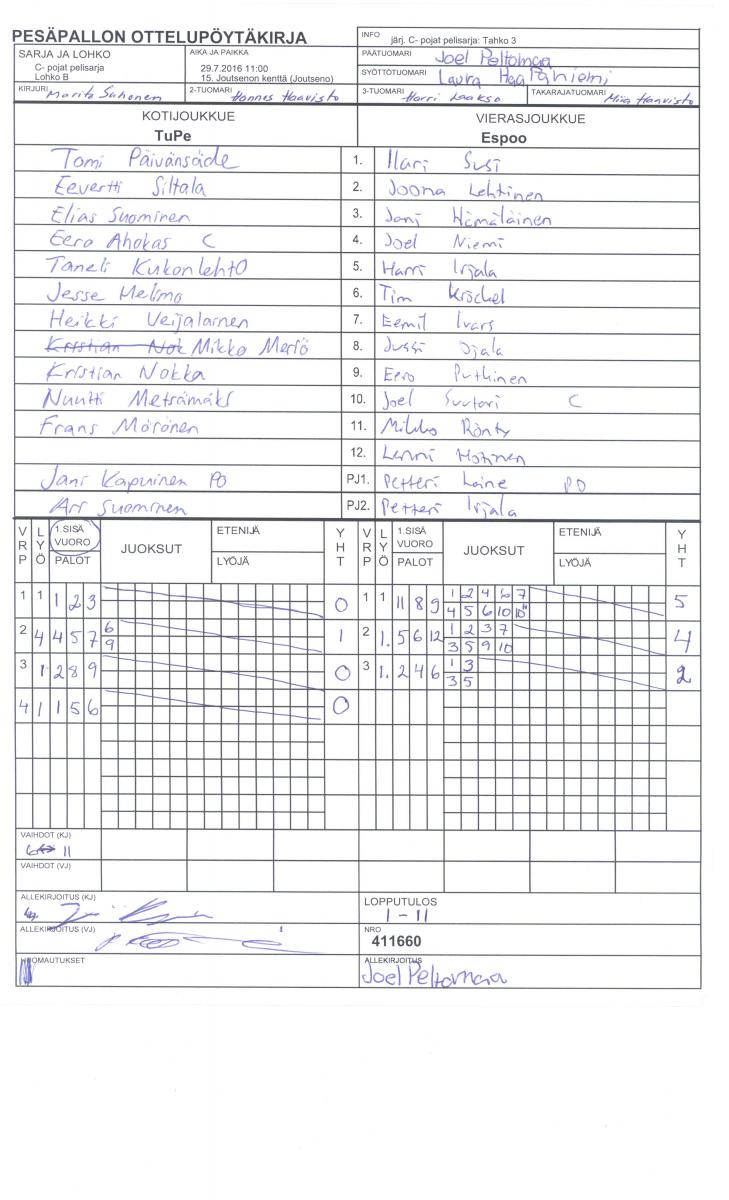 PESÄPALLON OTTELUPÖYTÄKIRJA
INFO järj. C- pojat pelisarja: Tahko 3
SARJA JA LOHKO
C- pojat pelisarja
Lohko B
AIKA JA PAIKKA
29.7.2016 11:00
15. Joutsenon kenttä (Joutseno)
PÄÄTUOMARI Joel Peltomaa
SYÖTTÖTUOMARI Laura Haapaniemi
KIRJURI Marita Suhonen
2-TUOMARI Hannes Haavisto
3-TUOMARI Harri Laakso
TAKARAJATUOMARI Miia Haavisto
KOTIJOUKKUE VIERASJOUKKUE
TuPe Espoo
Tomi Päivänsäde 1. Ilari Susi
Eevertti Siltala 2. Joona Lehtinen
Elias Suominen 3. Jani Hämäläinen
Eero Ahokas C 4. Joel Niemi
Taneli Kukonlehto 5. Harri Irjala
Jesse Melimo 6. Tim Kröckel
Heikki Veijalainen 7. Eemil Ivars
Kristian Nok Mikko Meriö 8. Jussi Ojala
Kristian Nokka 9. Eero Putkinen
Nuutti Metsämäki 10. Joel Suutari C
Frans Mörönen 11. Mikko Rönty
12. Lenni
Jani PO PJ1. Petteri Laine PO
Ari Suominen PJ2. Petteri Irjala
VRP LYÖ 1.SISÄ VUORO PALOT JUOKSUT ETENIJÄ LYÖJÄ YHT VRP LYÖ 1.SISÄ VUORO PALOT JUOKSUT ETENIJÄ LYÖJÄ YHT
1 1 1 2 3 0 1 1 11 8 9 1 2 4 6 7 5
4 5 6 10 10
2 4 4 5 7 6 1 2 1. 5 6 12 1 2 3 7 4
9 3 5 9 10
3 1 2 8 9 0 3 1. 2 4 6 1 3 2
3 5
4 1 1 5 6 0
VAIHDOT (KJ)
6 ↔ 11
VAIHDOT (VJ)
ALLEKIRJOITUS (KJ)
LOPPUTULOS
1 - 11
ALLEKIRJOITUS (VJ)
NRO
411660
HUOMAUTUKSET
ALLEKIRJOITUS
Joel Peltomaa